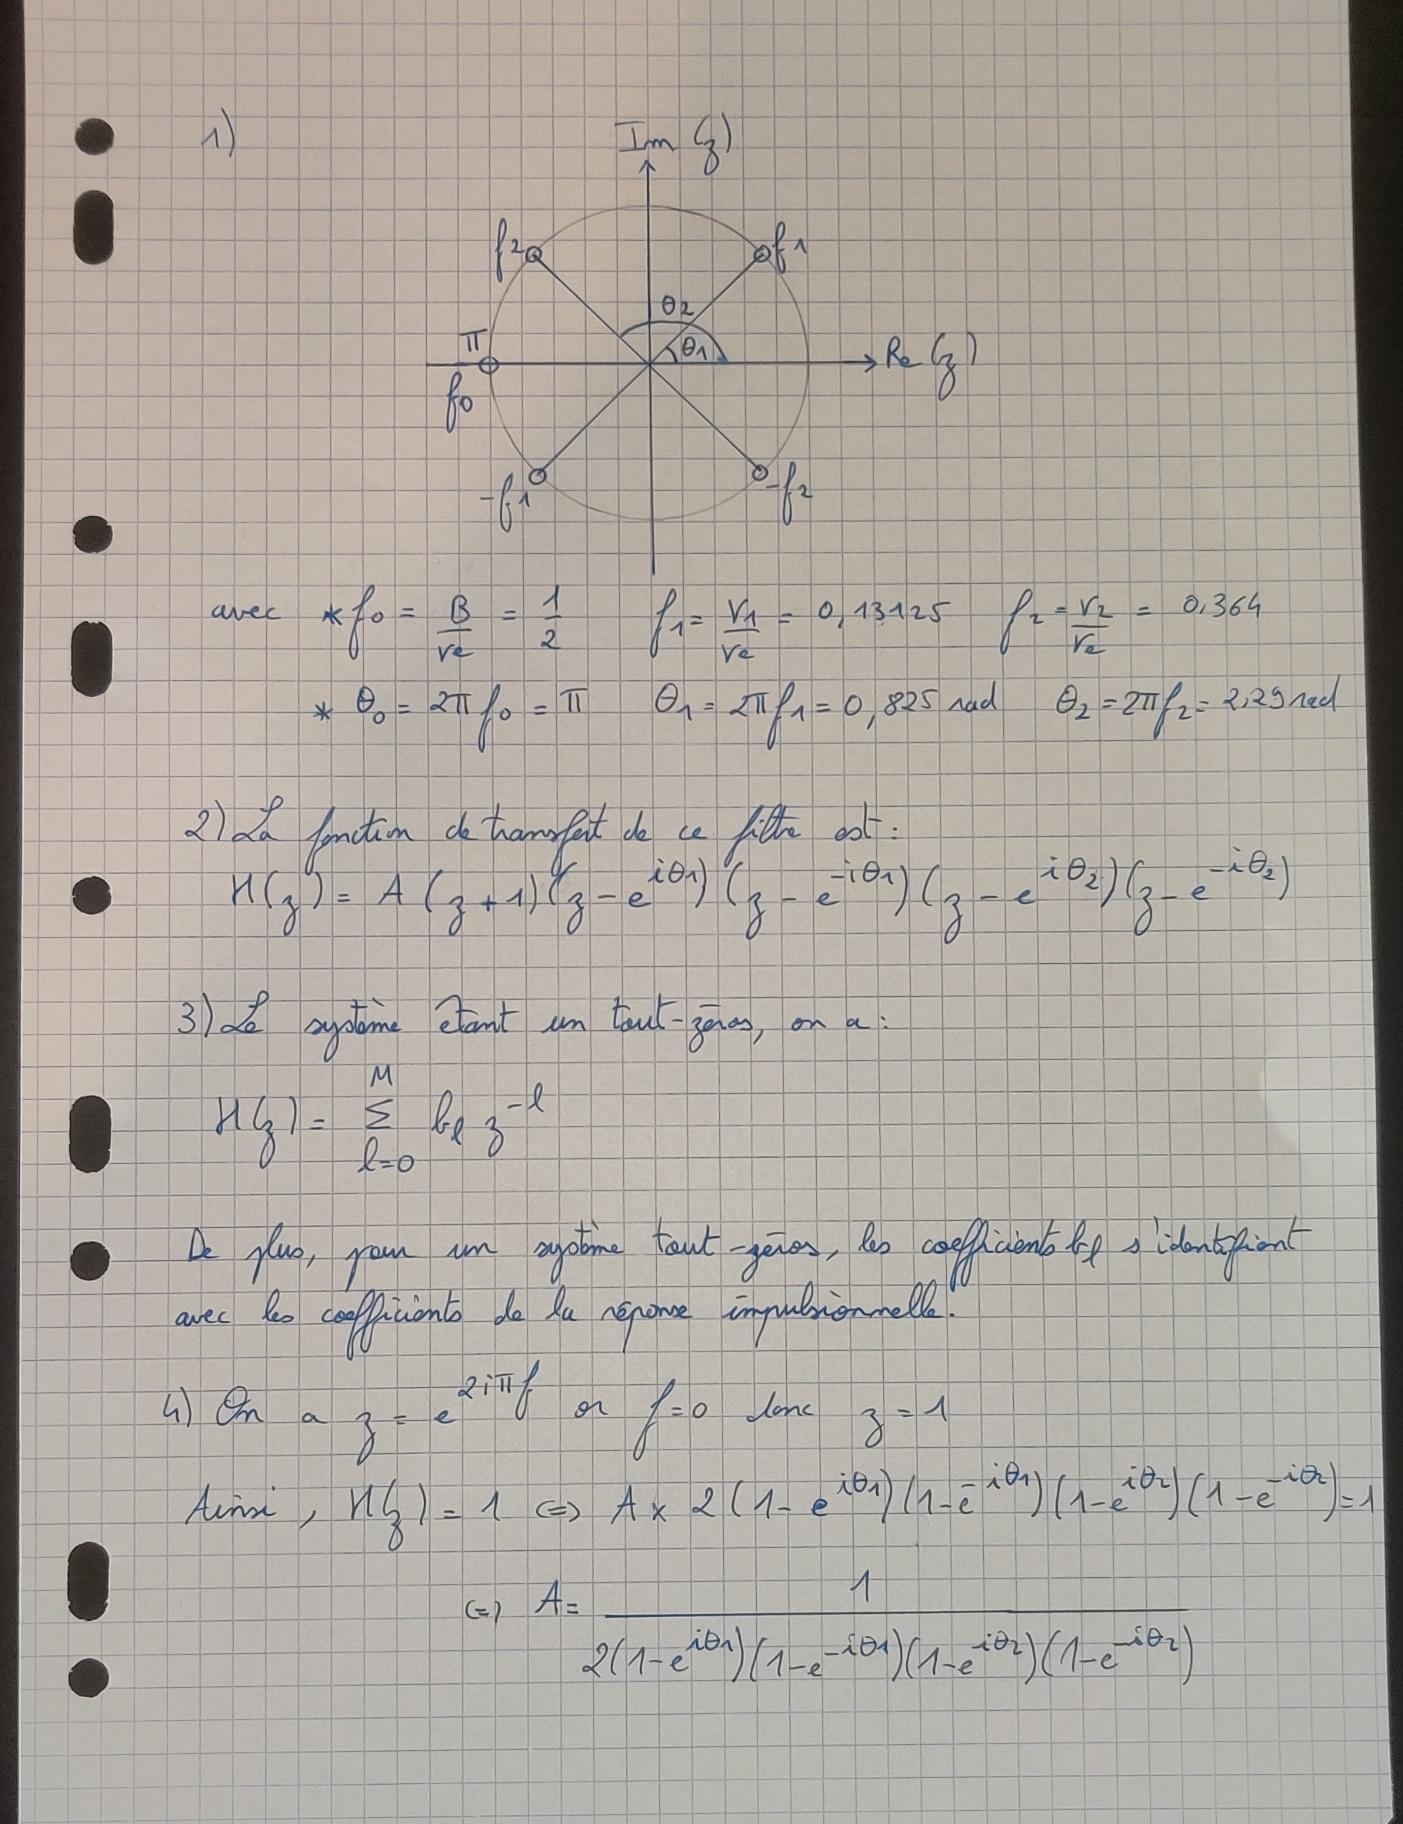 1)
Im (z)
f2 f1
θ2
π θ1 Re (z)
f0
-f1 -f2
avec * f0 = B/νe = 1/2 f1 = ν1/νe = 0,13125 f2 = ν2/νe = 0,364
* θ0 = 2π f0 = π θ1 = 2π f1 = 0,825 rad θ2 = 2π f2 = 2,29 rad
2) La fonction de transfert de ce filtre est :
H(z) = A (z + 1) (z - e^{iθ1}) (z - e^{-iθ1}) (z - e^{iθ2}) (z - e^{-iθ2})
3) Le système étant un tout-zéros, on a :
H(z) = Σ_{l=0}^{M} b_l z^{-l}
De plus, pour un système tout-zéros, les coefficients b_l s'identifient
avec les coefficients de la réponse impulsionnelle.
4) On a z = e^{2iπf} or f=0 donc z = 1
Ainsi, H(z) = 1 <=> A x 2 (1 - e^{iθ1}) (1 - e^{-iθ1}) (1 - e^{iθ2}) (1 - e^{-iθ2}) = 1
<=> A = 1 / 2(1-e^{iθ1})(1-e^{-iθ1})(1-e^{iθ2})(1-e^{-iθ2})